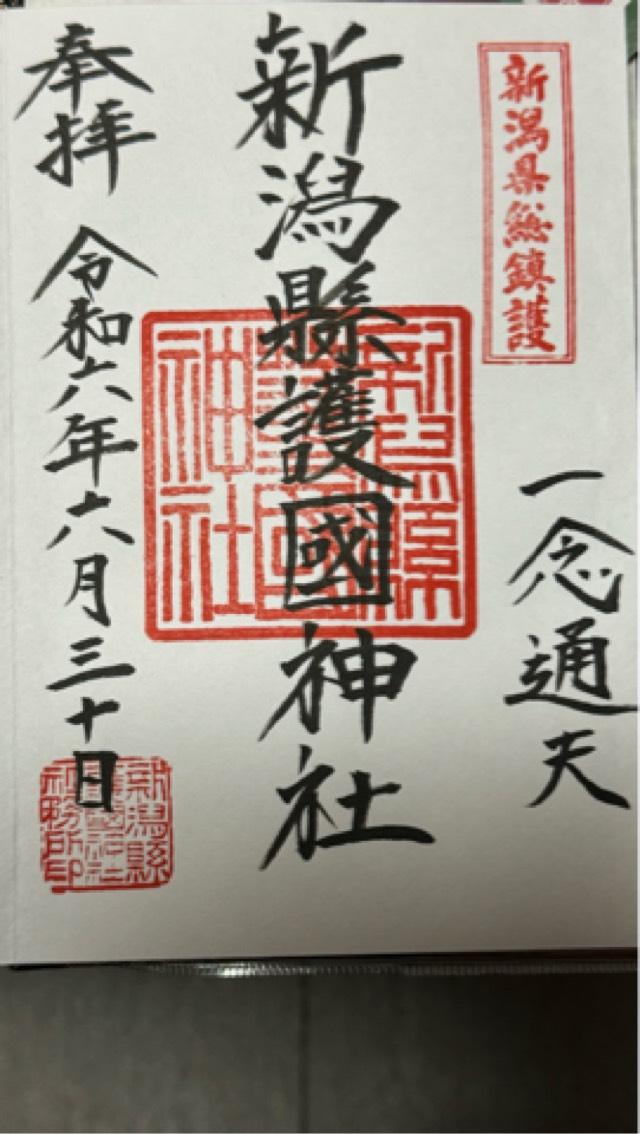 新潟県総鎮護
一念通天
新潟縣護國神社
新潟縣護國神社
奉拝 令和六年六月三十日
新潟縣護國神社社務所印